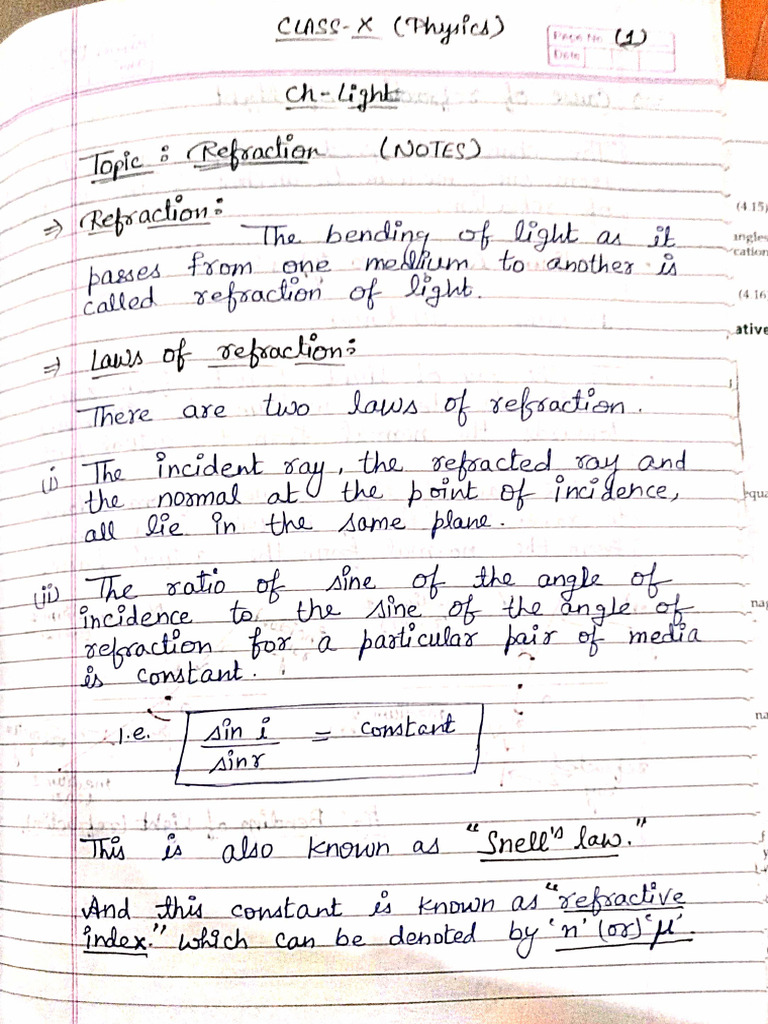 CLASS-X (Physics)
Page No. (1)
Date
Ch-Light
Topic : Refraction (NOTES)
⇒ Refraction:
The bending of light as it
passes from one medium to another is
called refraction of light.
⇒ Laws of refraction:
There are two laws of refraction.
(i) The incident ray, the refracted ray and
the normal at the point of incidence,
all lie in the same plane.
(ii) The ratio of sine of the angle of
incidence to the sine of the angle of
refraction for a particular pair of media
is constant.
i.e. sin i / sin r = constant
This is also known as "Snell's law."
And this constant is known as "refractive
index." which can be denoted by 'n' (or) 'μ'.
(4.15)
angles
cation
(4.16
ative
equa
na